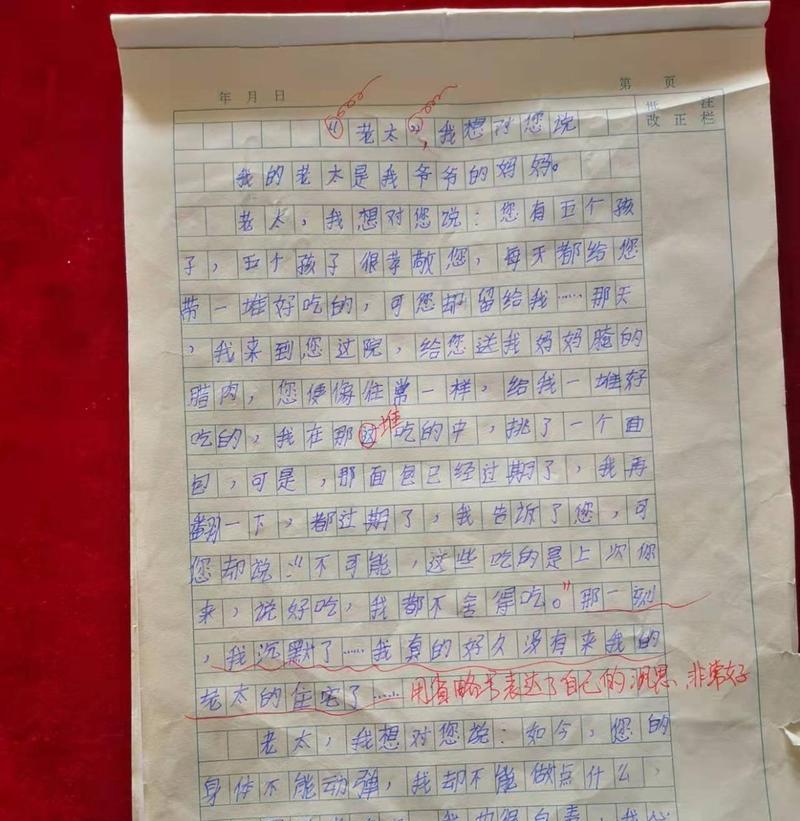 年 月 日 第 页
批 注
改 正 栏
“老太”，我想对您说
我的老太是我爷爷的妈妈。
老太，我想对您说：您有五个孩
子，五个孩子很孝敬您，每天都给您
带一堆好吃的，可您却留给我……那天
，我来到您过院，给您送我妈妈腌的
腊肉，您便像往常一样，给我一堆好
吃的，我在那堆吃的中，挑了一个面
包，可是，那面包已经过期了，我再
翻一下，都过期了，我告诉了您，可
您却说：“不可能，这些吃的是上次你
来，说好吃，我都不舍得吃。”那一刻
，我沉默了……我真的好久没有来我的
老太的住宅了…… 用省略号表达了自己的沉思，非常好
老太，我想对您说：如今，您的
身体不能动弹，我却不能做点什么，